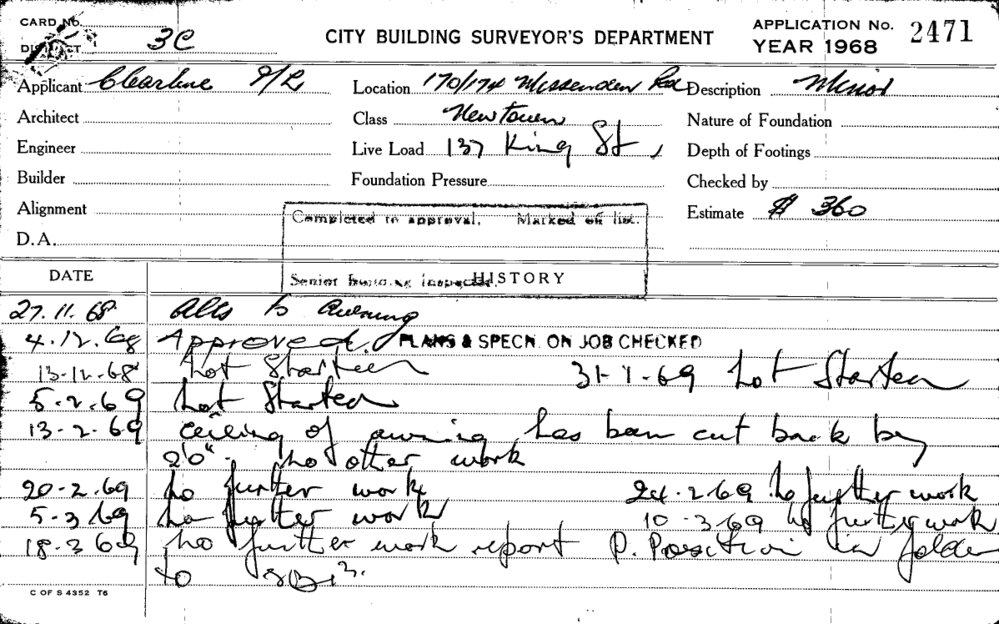 CARD No.
DISTRICT 3C
CITY BUILDING SURVEYOR'S DEPARTMENT
APPLICATION No. 2471
YEAR 1968
Applicant Clearline P/L Location 170/174 Missenden Rd Description Minor
Architect Class Newtown Nature of Foundation
Engineer Live Load 137 King St, Depth of Footings
Builder Foundation Pressure Checked by
Alignment Completed in approval. Marked off list. Estimate $ 360
D.A.
DATE Senior building inspector HISTORY
27.11.68 Alts to Awning
4.12.68 Approved. PLANS & SPECN. ON JOB CHECKED
13-12-68 Not Started 31-1-69 Not Started
5-2-69 Not Started
13-2-69 Ceiling of awning has been cut back by
26" - No other work
20-2-69 No further work 24-2-69 No further work
5-3-69 No further work 10-3-69 No further work
18-3-69 No further work report P. Position in folder
to SBI
C OF S 4352 T6